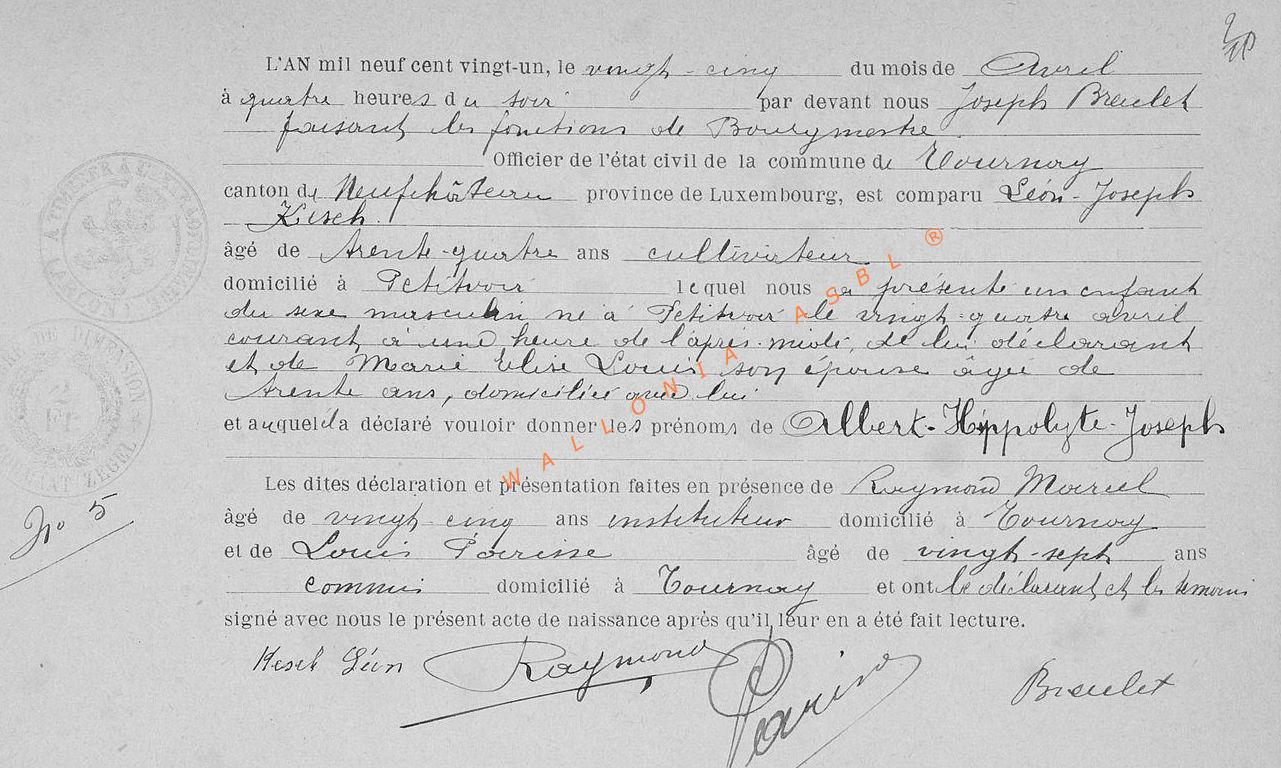 L'AN mil neuf cent vingt-un, le vingt-cinq du mois de Avril
à quatre heures du soir par devant nous Joseph Breulet
faisant les fonctions de Bourgmestre.
Officier de l'état civil de la commune de Tournay
canton de Neufchâteau province de Luxembourg, est comparu Léon-Joseph
Kesch.
âgé de trente-quatre ans cultivateur
domicilié à Petitvoir lequel nous a présenté un enfant
du sexe masculin né à Petitvoir le vingt-quatre avril
courant à une heure de l'après-midi, de lui déclarant
et de Marie Elise Louis son épouse âgée de
trente ans, domiciliée avec lui
et auquel il a déclaré vouloir donner les prénoms de Albert-Hippolyte-Joseph
Les dites déclaration et présentation faites en présence de Raymond Marcel
âgé de vingt-cinq ans instituteur domicilié à Tournay
et de Louis Parisse âgé de vingt-sept ans
commis domicilié à Tournay et ont le déclarant et les témoins
signé avec nous le présent acte de naissance après qu'il leur en a été fait lecture.
Kesch Léon Raymond Breulet
No 5
WALLONIA ASBL ®
DIMENSION
ZEGEL
2